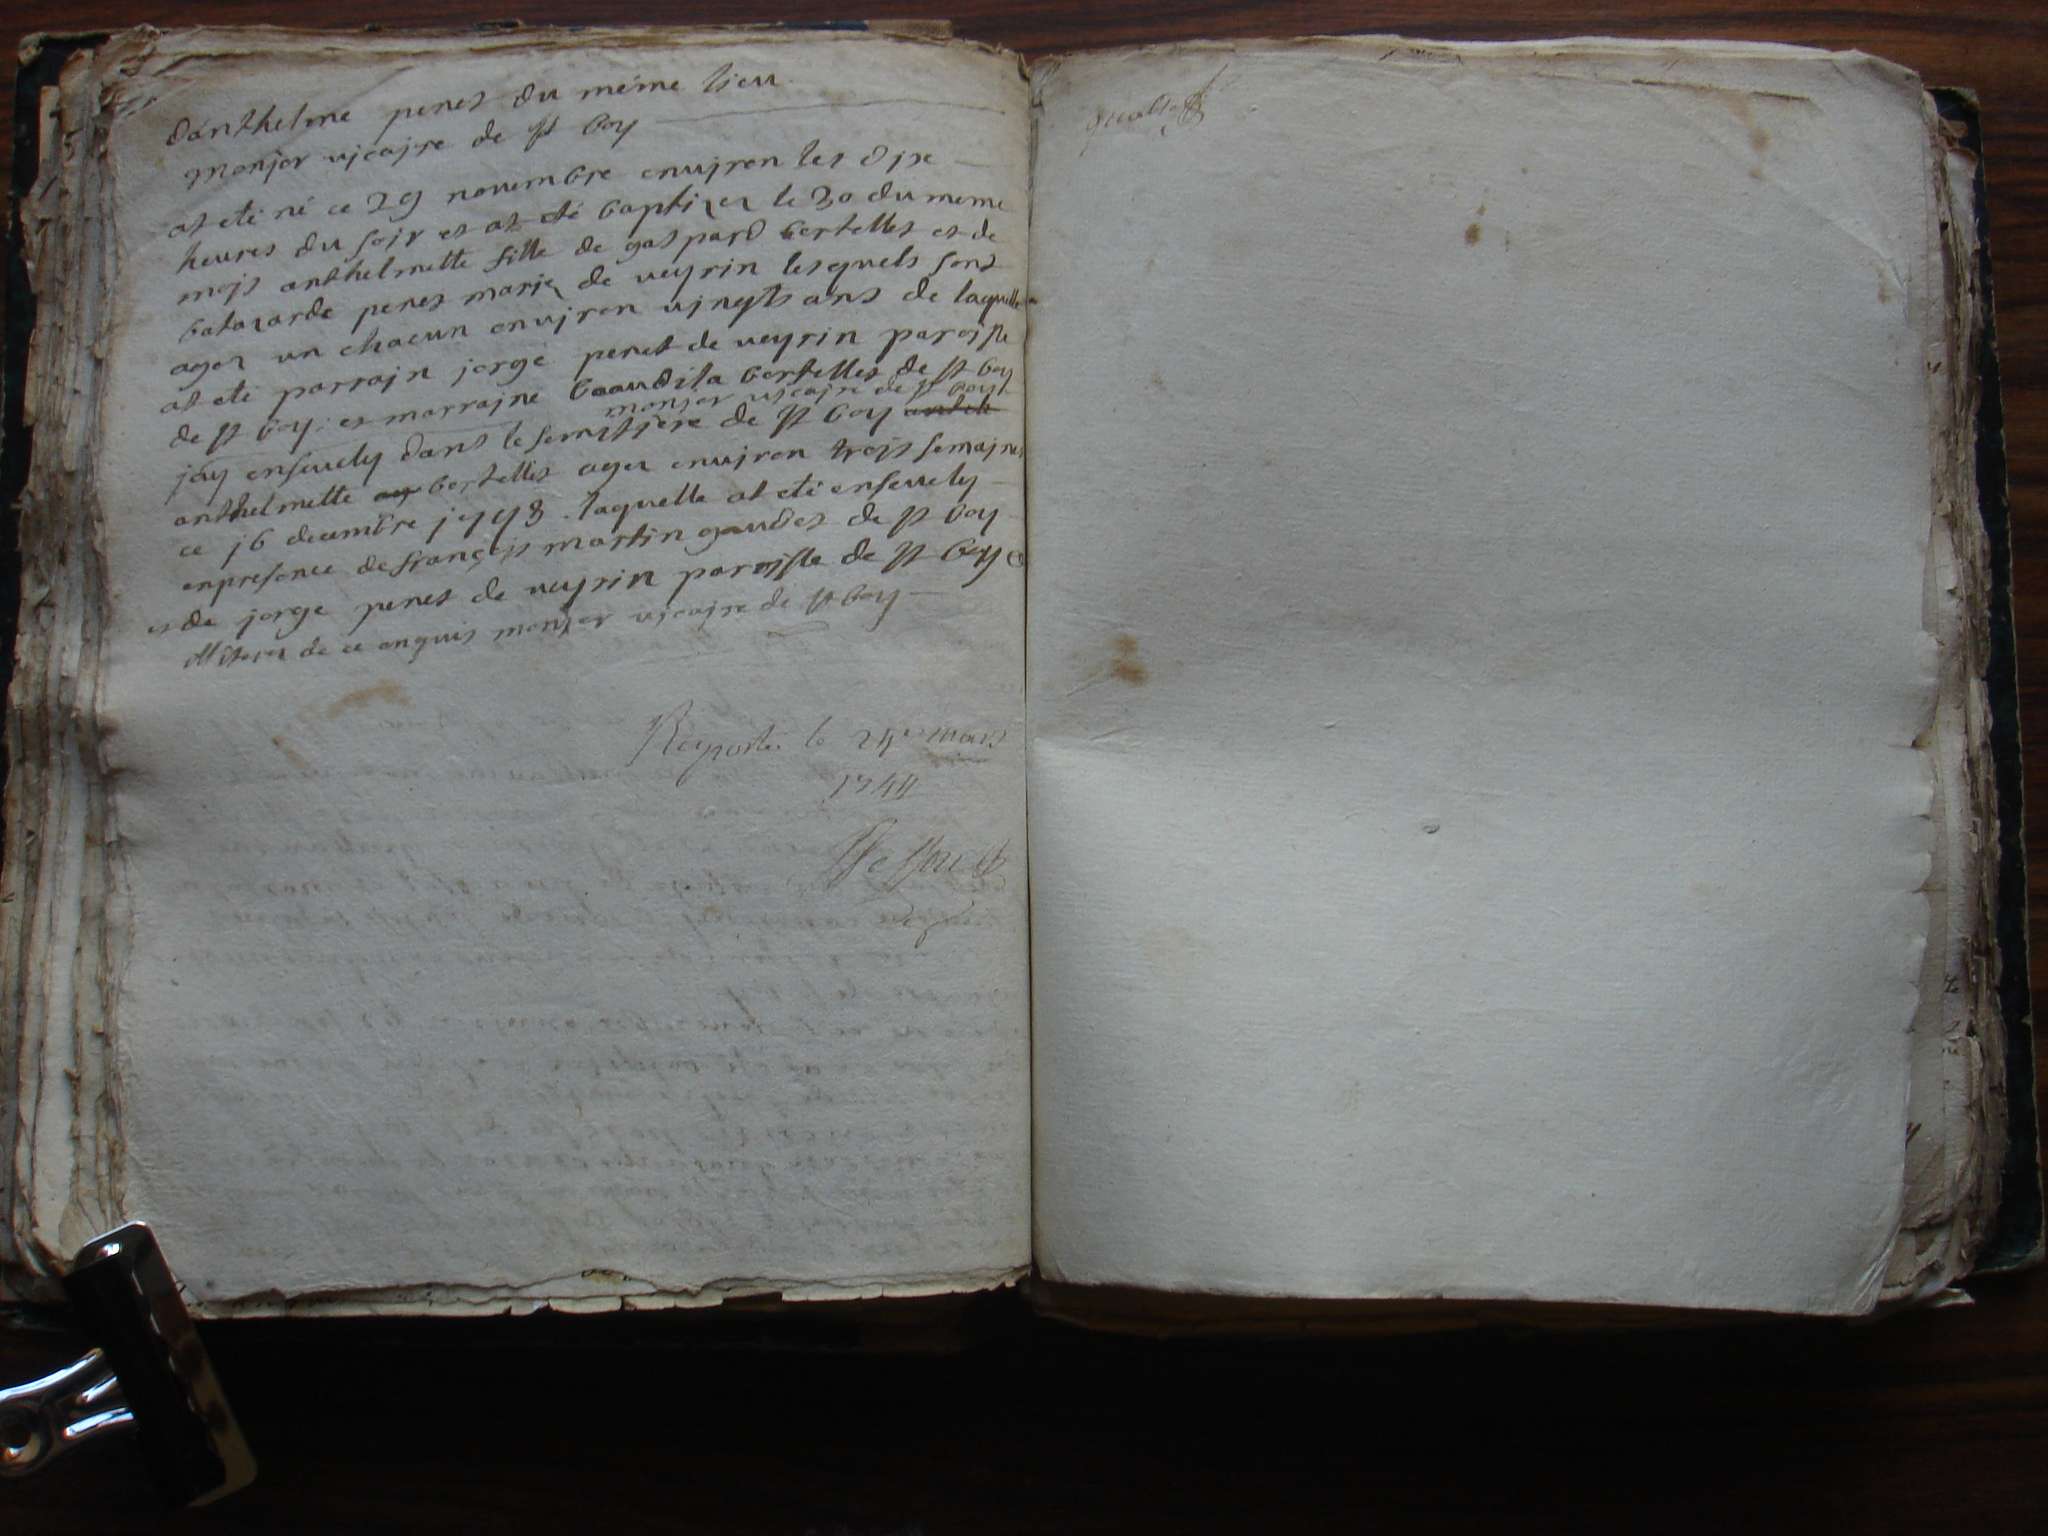 danthelme peret du méme lieu
monjor vjcajre de st boy
at eté né ce 29 novembre envjron les djx
heures du sojr et at eté baptizez le 30 du meme
mojs anthelmette fille de gaspard bertellet et de
peret marjez de veyrin lesquels sont
agez un chacun envjron vjngts ans de laquelle
at eté parrajn jorge peret de veyrin paroisse
de st boy. et marrajne bertellet de st boy
monjor vjcajre de st boy
jay ensevely dans le semitjere de st boy
anthelmette bertellet agez envjron trojs semajnes
ce j6 decembre j743 . laquelle at eté ensevely
enpresence de françojs martin gaudet de st boy
et de jorge peret de veyrin paroisse de st boy
illiterez de ce enquis monjor vjcajre de st boy
Reporté le 24 mars
1744